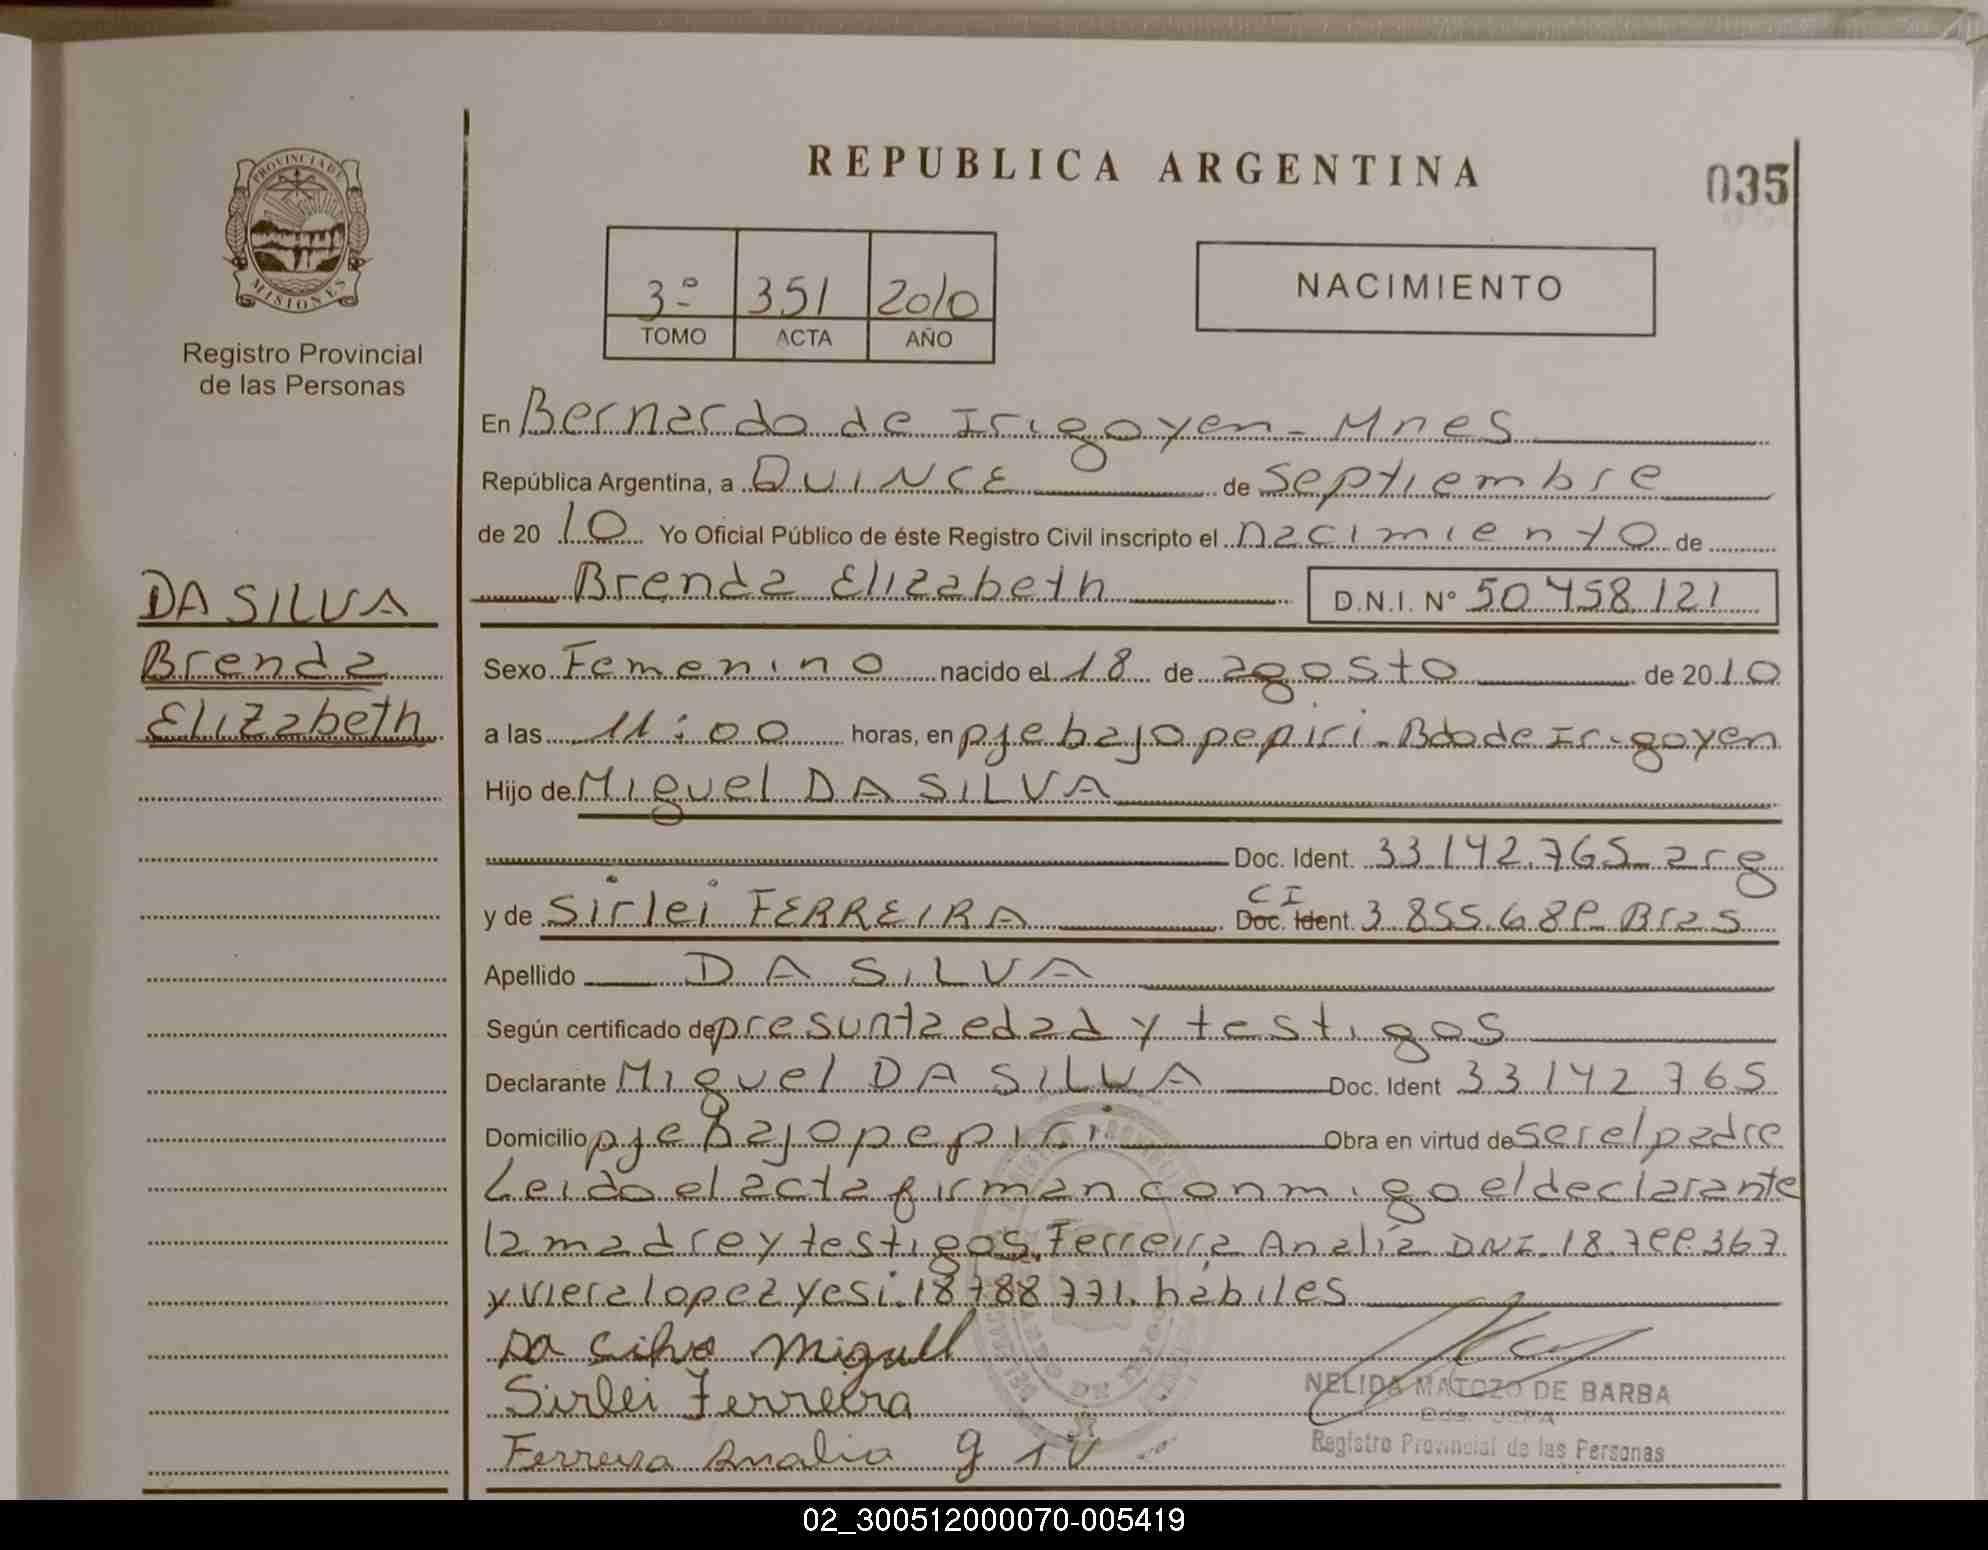 REPUBLICA ARGENTINA
035
PROVINCIA DE
MISIONES
Registro Provincial
de las Personas
3º 351 2010
TOMO ACTA AÑO
NACIMIENTO
En Bernardo de Irigoyen - Mnes
República Argentina, a QUINCE de septiembre
de 2010 Yo Oficial Público de éste Registro Civil inscripto el nacimiento de
DA SILVA
Brenda
Elizabeth
Brenda Elizabeth D.N.I. Nº 50 458 121
Sexo Femenino nacido el 18 de agosto de 2010
a las 11:00 horas, en pje bajo pepiri - Bdo de Irigoyen
Hijo de Miguel DA SILVA
Doc. Ident. 33 142.765 arg
y de Sirlei FERREIRA CI Doc. Ident. 3 855.689 Bras
Apellido DA SILVA
Según certificado de presunta edad y testigos
Declarante Miguel DA SILVA Doc. Ident 33 142 765
Domicilio pje Bajo pepiri Obra en virtud de ser el padre
Leido el acta firman conmigo el declarante
la madre y testigos. Ferreira Analía DNI. 18.799.367
y viera lopez yesi. 18788 771. hábiles
Da Silva Miguel
Sirlei Ferreira
Ferreira Analia
NELIDA MATOZO DE BARBA
Registro Provincial de las Personas
02_300512000070-005419